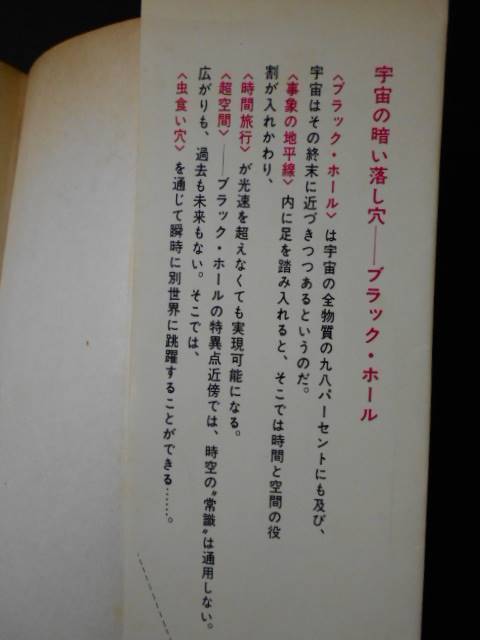 宇宙の暗い落し穴――ブラック・ホール
〈ブラック・ホール〉は宇宙の全物質の九八パーセントにも及び、
宇宙はその終末に近づきつつあるというのだ。
〈事象の地平線〉内に足を踏み入れると、そこでは時間と空間の役
割が入れかわり、
〈時間旅行〉が光速を超えなくても実現可能になる。
〈超空間〉――ブラック・ホールの特異点近傍では、時空の〝常識〟は通用しない。
広がりも、過去も未来もない。そこでは、
〈虫食い穴〉を通じて瞬時に別世界に跳躍することができる……。